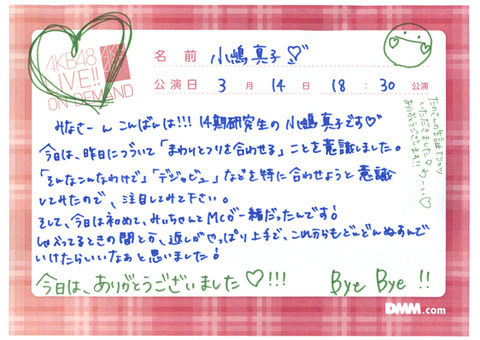 AKB48
LIVE!!
ON DEMAND
名 前 小嶋真子♡
公演日 3 月 14 日 18 : 30 公演
みなさーん こんばんは!!! 14期研究生の小嶋真子です♡
今日は、昨日につづいて「まわりとフリを合わせる」ことを意識しました。
「そんなこんなわけで」「デジャビュ」などを特に合わせようと意識
してみたので、注目してみて下さい。
そして、今日は初めて、みぃちゃんとMCが一緒だったんです!
しゃべってるときの間とか、返しがやっぱり上手で、これからもどんどんぬすんで
いけたらいいなぁと思いました!
今日は、ありがとうございました♡!!!
Bye Bye !!
DMM.com